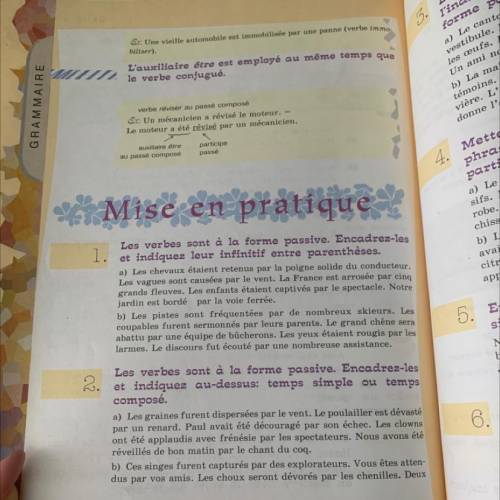 GRAMMAIRE
Ex. Une vieille automobile est immobilisée par une panne (verbe immo-
biliser).
L'auxiliaire être est employé au même temps que
le verbe conjugué.
verbe réviser au passé composé
Ex. Un mécanicien a révisé le moteur. =
Le moteur a été révisé par un mécanicien.
auxiliaire être participe
au passé composé passé
Mise en pratique
1. Les verbes sont à la forme passive. Encadrez-les
et indiquez leur infinitif entre parenthèses.
a) Les chevaux étaient retenus par la poigne solide du conducteur.
Les vagues sont causées par le vent. La France est arrosée par cinq
grands fleuves. Les enfants étaient captivés par le spectacle. Notre
jardin est bordé par la voie ferrée.
b) Les pistes sont fréquentées par de nombreux skieurs. Les
coupables furent sermonnés par leurs parents. Le grand chêne sera
abattu par une équipe de bûcherons. Les yeux étaient rougis par les
larmes. Le discours fut écouté par une nombreuse assistance.
2. Les verbes sont à la forme passive. Encadrez-les
et indiquez au-dessus: temps simple ou temps
composé.
a) Les graines furent dispersées par le vent. Le poulailler est dévasté
par un renard. Paul avait été découragé par son échec. Les clowns
ont été applaudis avec frénésie par les spectateurs. Nous avons été
réveillés de bon matin par le chant du coq.
b) Ces singes furent capturés par des explorateurs. Vous êtes atten-
dus par vos amis. Les choux seront dévorés par les chenilles. Deux
3.
forme p
a) Le cam
vestibule.
les œufs.
Un ami n
b) La ma
témoins.
vière. L'
donne l'
4. Mette
phra
parti
a) Le
sifs.
robe.
chiss
b) L
avai
citr
app
5.
6.